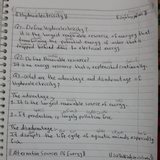 Hydroelectricity
Q1: Define hydroelectricity?
It is the largest renewable source of energy that
the potential energy of water that is
trapped behind dams to electrical energy.
Q2: Define Renewable resource?
energy source that is replenished continually.
Q3: What are the advantage and disadvantage of
hydroelectricity?
The advantage
1. It is the largest renewable source of energy.
2. Its production is largely pollution free.
The disadvantage
It disrupts the life cycle of aquatic animals, especially
fish.
Alternative sources of Energy